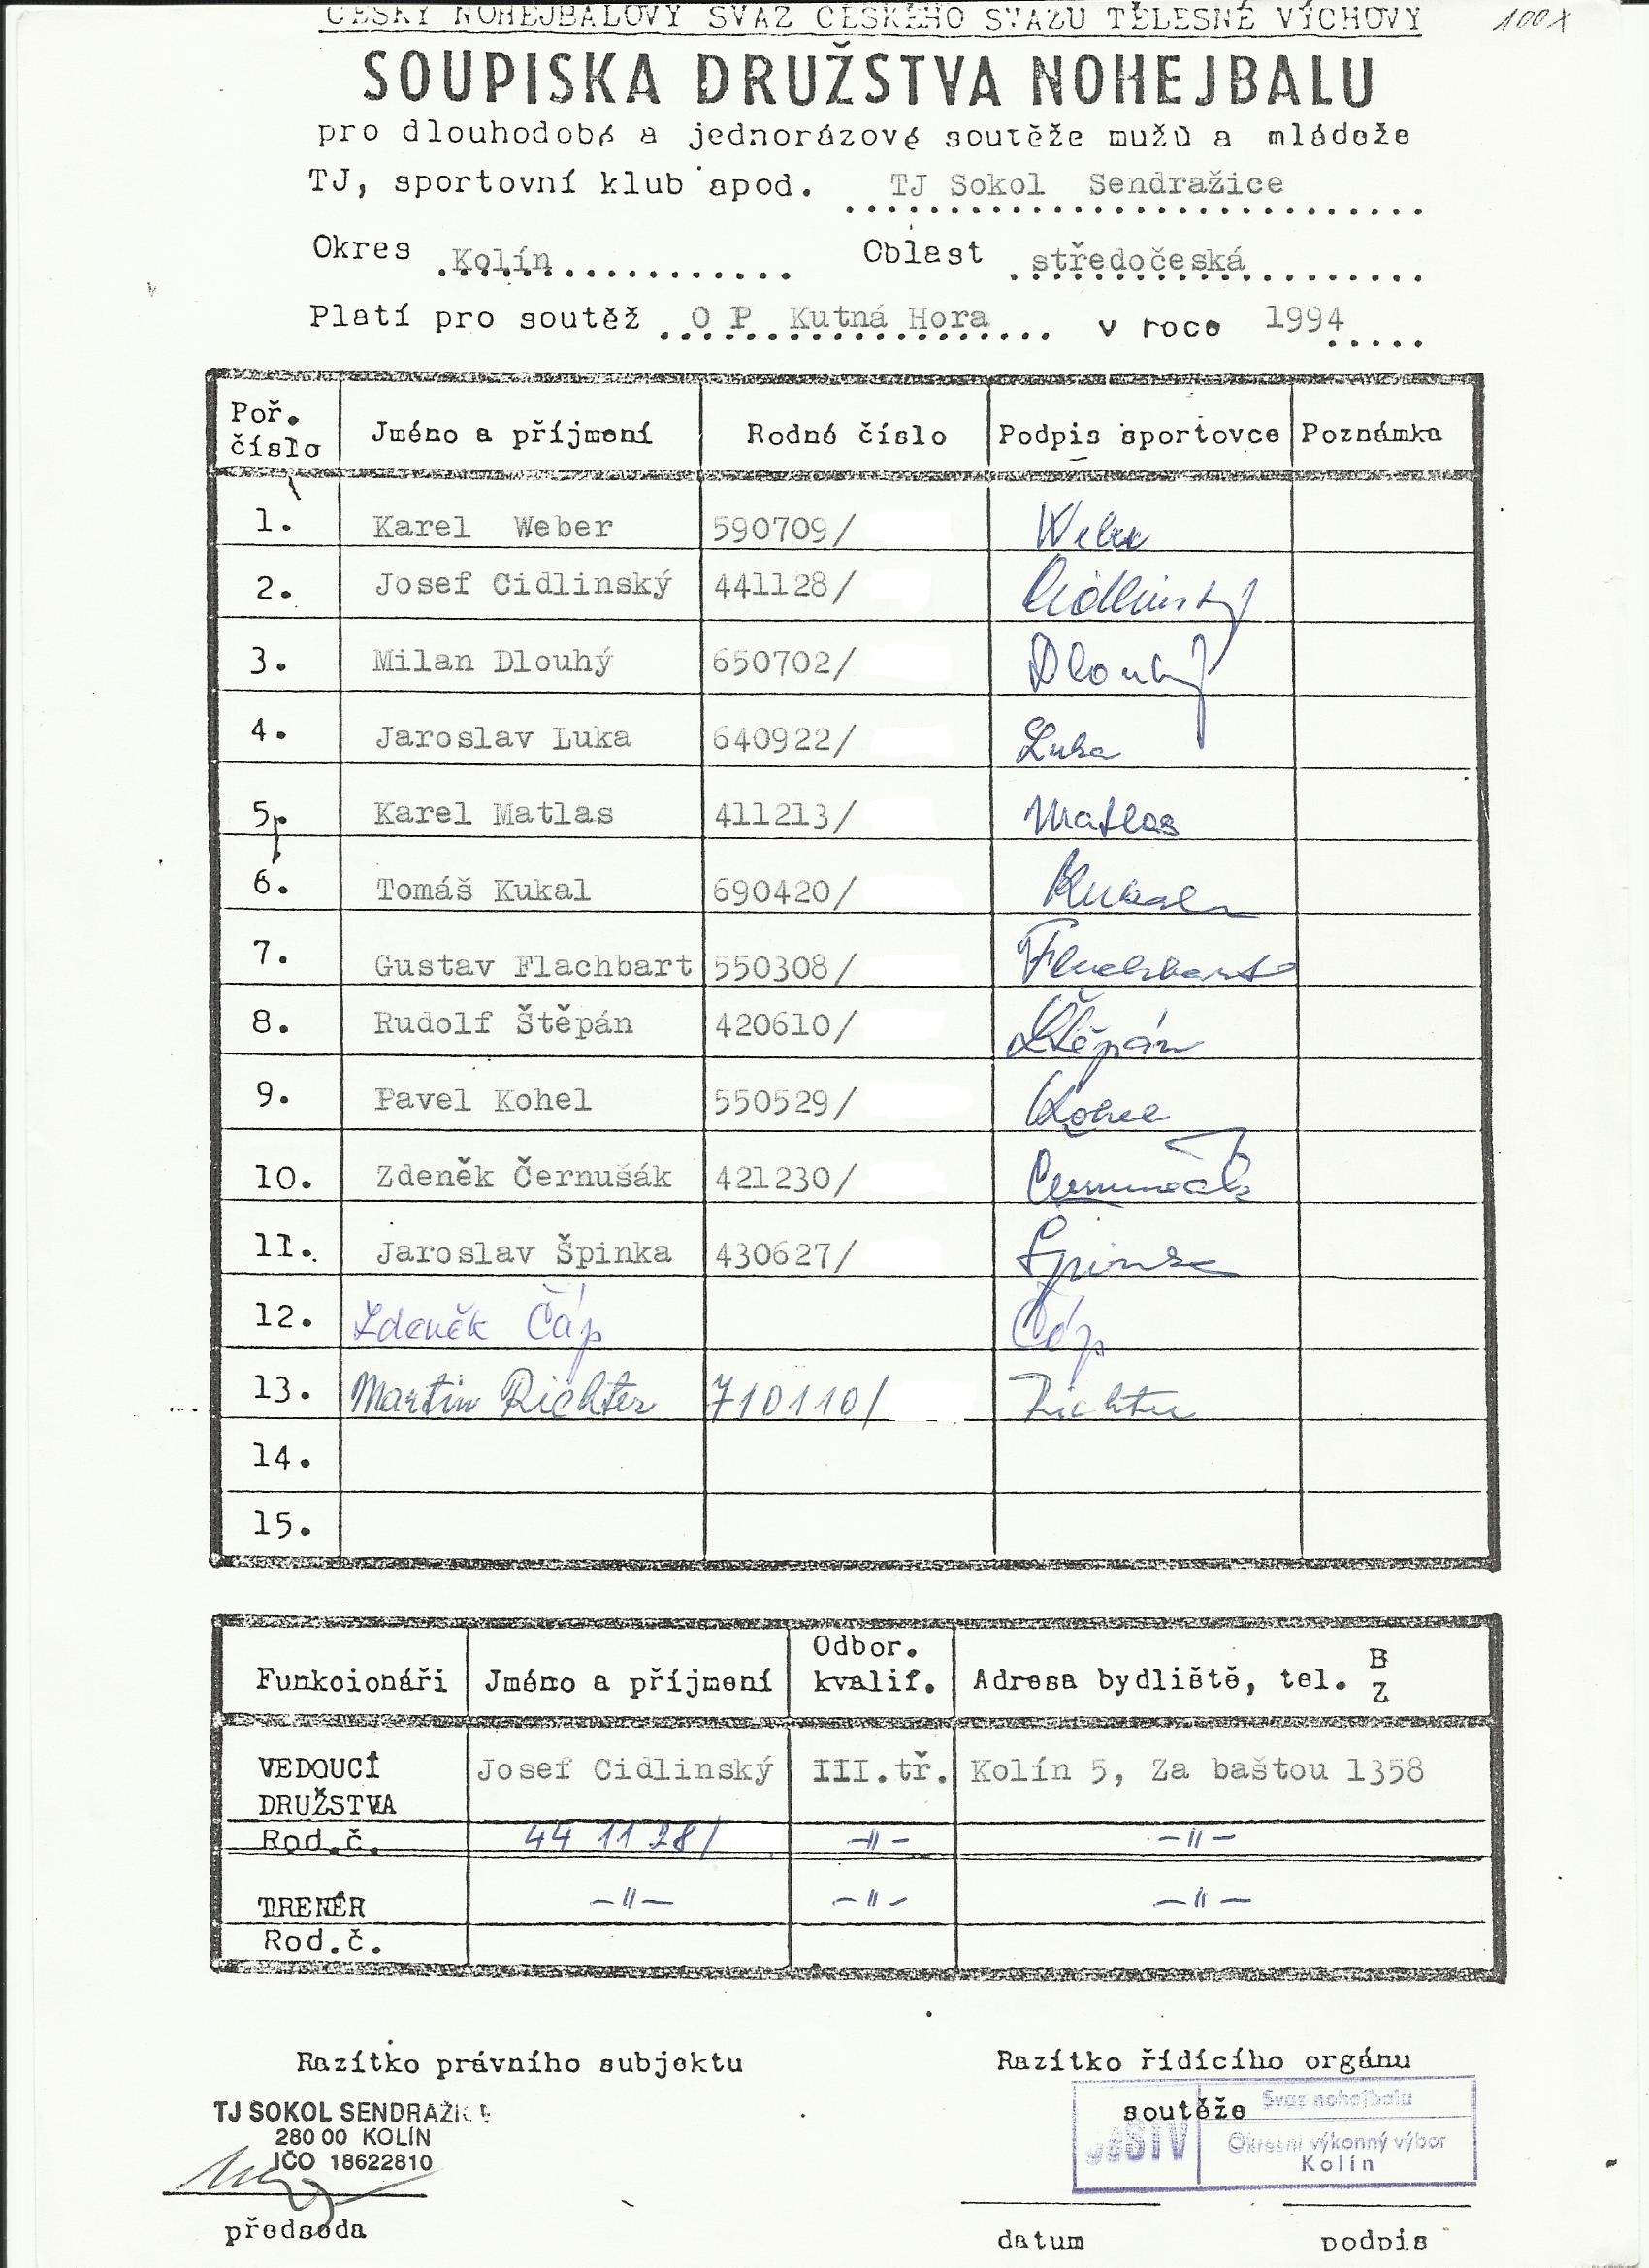 ČESKÝ NOHEJBALOVÝ SVAZ ČESKÉHO SVAZU TĚLESNÉ VÝCHOVY
100x
SOUPISKA DRUŽSTVA NOHEJBALU
pro dlouhodobé a jednorázové soutěže mužů a mládeže
TJ, sportovní klub apod. TJ Sokol Sendražice
Okres Kolín Oblast středočeská
Platí pro soutěž O P Kutná Hora v roce 1994
Poř. číslo Jméno a příjmení Rodné číslo Podpis sportovce Poznámka
1. Karel Weber 590709/ Weber
2. Josef Cidlinský 441128/ Cidlinský
3. Milan Dlouhý 650702/ Dlouhý
4. Jaroslav Luka 640922/ Luka
5. Karel Matlas 411213/ Matlas
6. Tomáš Kukal 690420/ Kukal
7. Gustav Flachbart 550308/ Flachbart
8. Rudolf Štěpán 420610/ Štěpán
9. Pavel Kohel 550529/ Kohel
10. Zdeněk Černušák 421230/ Černušák
11. Jaroslav Špinka 430627/ Špinka
12. Zdeněk Čáp Čáp
13. Martin Richter 710110/ Richter
14.
15.
Funkcionáři Jméno a příjmení Odbor. kvalif. Adresa bydliště, tel. B Z
VEDOUCÍ DRUŽSTVA Josef Cidlinský III.tř. Kolín 5, Za baštou 1358
Rod.č. 44 11 28/ -"- -"-
TRENÉR -"- -"- -"-
Rod.č.
Razítko právního subjektu Razítko řídícího orgánu
soutěže
TJ SOKOL SENDRAŽICE
280 00 KOLÍN
IČO 18622810
předseda
Svaz nohejbalu
Okresní výkonný výbor
Kolín
datum podpis